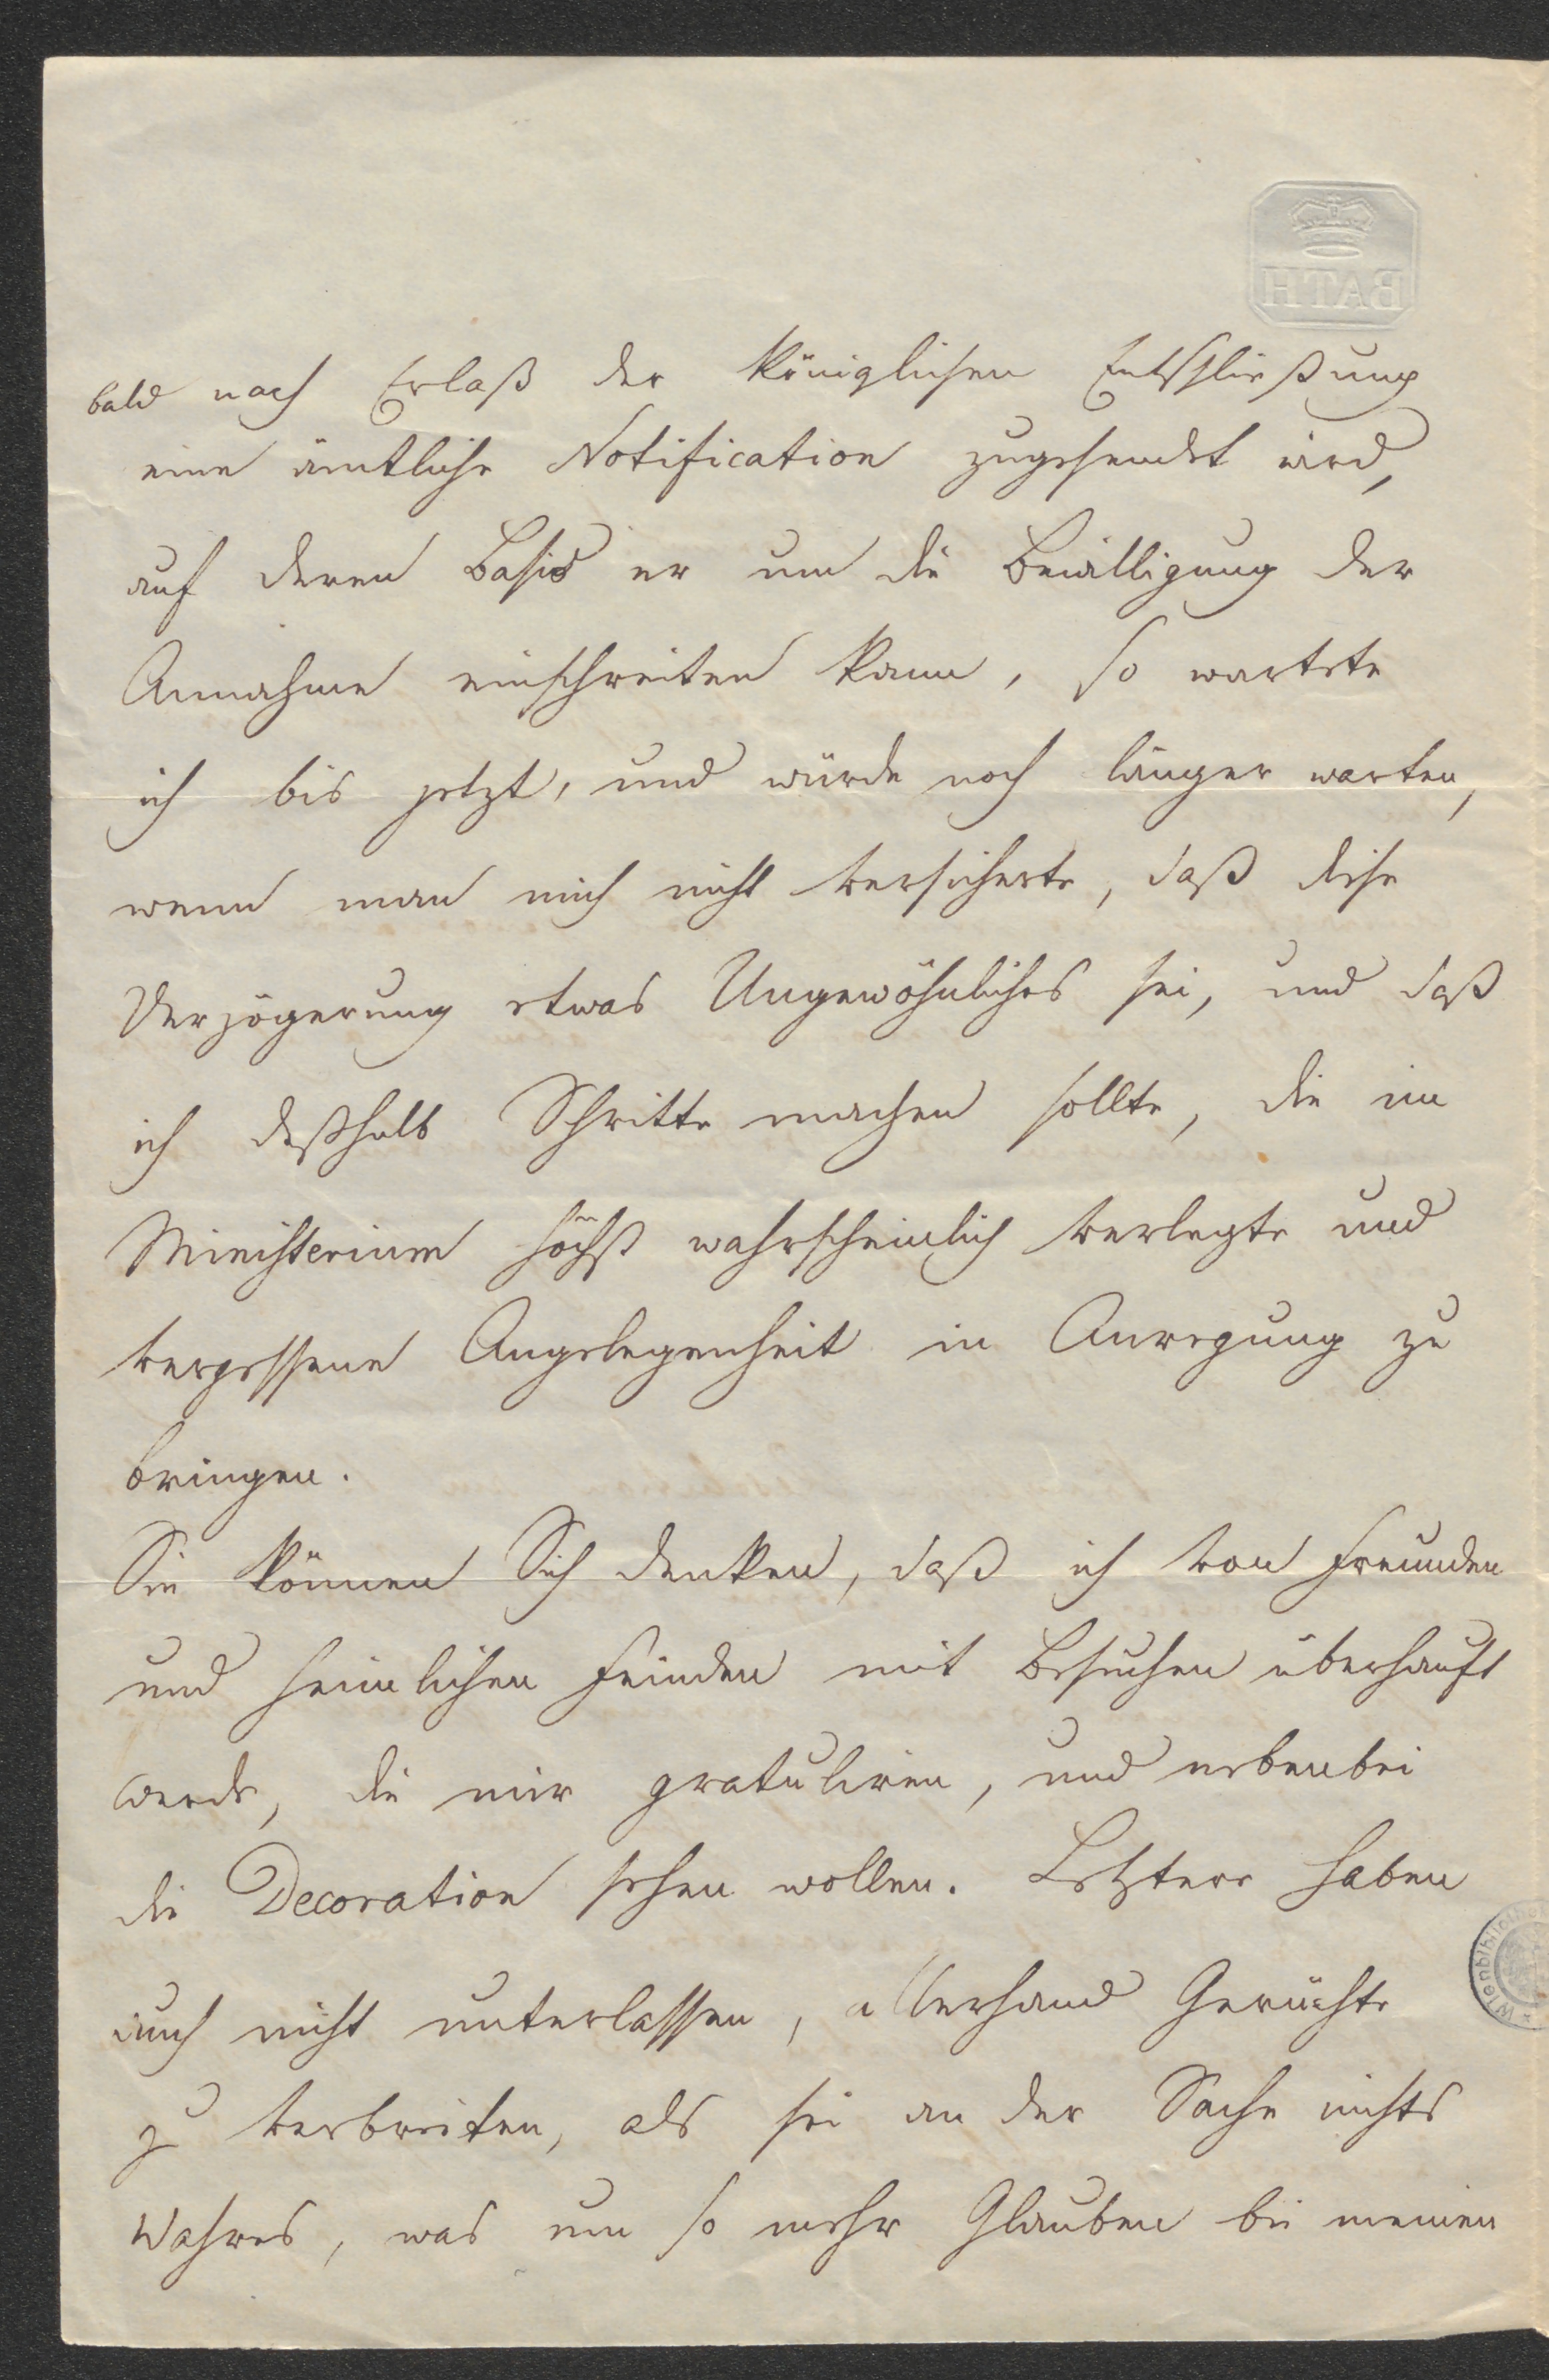 BATH
bald nach Erlaß der königlichen Entschließung
eine ämtliche Notification zugesendet wird,
auf deren Basis er um die Bewilligung der
Annahme einschreiten kann, so wartete
ich bis jetzt, und würde noch länger warten,
wenn man mich nicht versicherte, daß diese
Verzögerung etwas Ungewöhnliches sei, und daß
ich deßhalb Schritte machen sollte, die im
Ministerium höchst wahrscheinlich verlegte und
vergessene Angelegenheit in Anregung zu
bringen.
Sie können Sich denken, daß ich von Freunden
und heimlichen Feinden mit Besuchen überhauft
werde, die mir gratuliren, und nebenbei
die Decoration sehen wollen. Letztere haben
auch nicht unterlassen, allerhand Gerüchte
zu verbreiten, als sei an der Sache nichts
Wahres, was um so mehr Glauben bei meinen